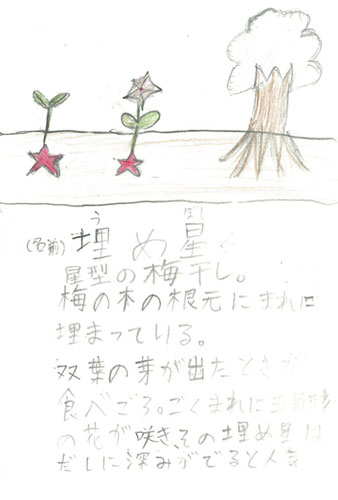 (名前) 埋め星
う ぼし
星型の梅干し。
梅の木の根元にまれに
埋まっている。
双葉の芽が出たときが
食べごろ。ごくまれに五角形
の花が咲き、その埋め星は
だしに深みがでると人気